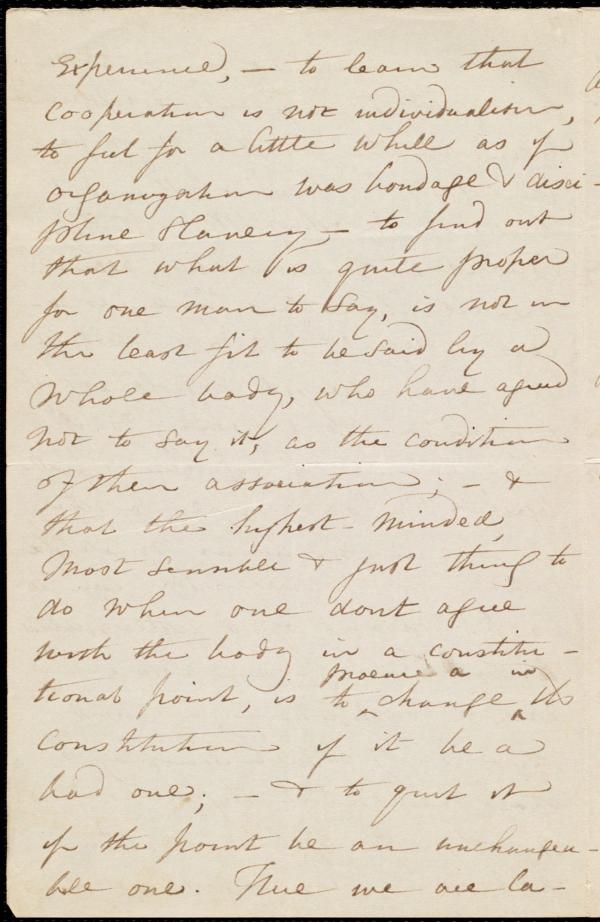 Experienced, — to learn that
cooperation is not individualism,
to feel for a little while as if
organization was bondage & disci-
pline slavery — to find out
that what is quite proper
for one man to say, is not in
the least fit to be said by a
whole body, who have agreed
not to say it, as the condition
of their association; — &
that the highest-minded,
most sensible & just thing to
do when one dont agree
with the body in a constitu-
tional point, is to procure a change in its
constitution if it be a
bad one; — & to quit it
if the point be an unchangea-
ble one. Thus we are la-